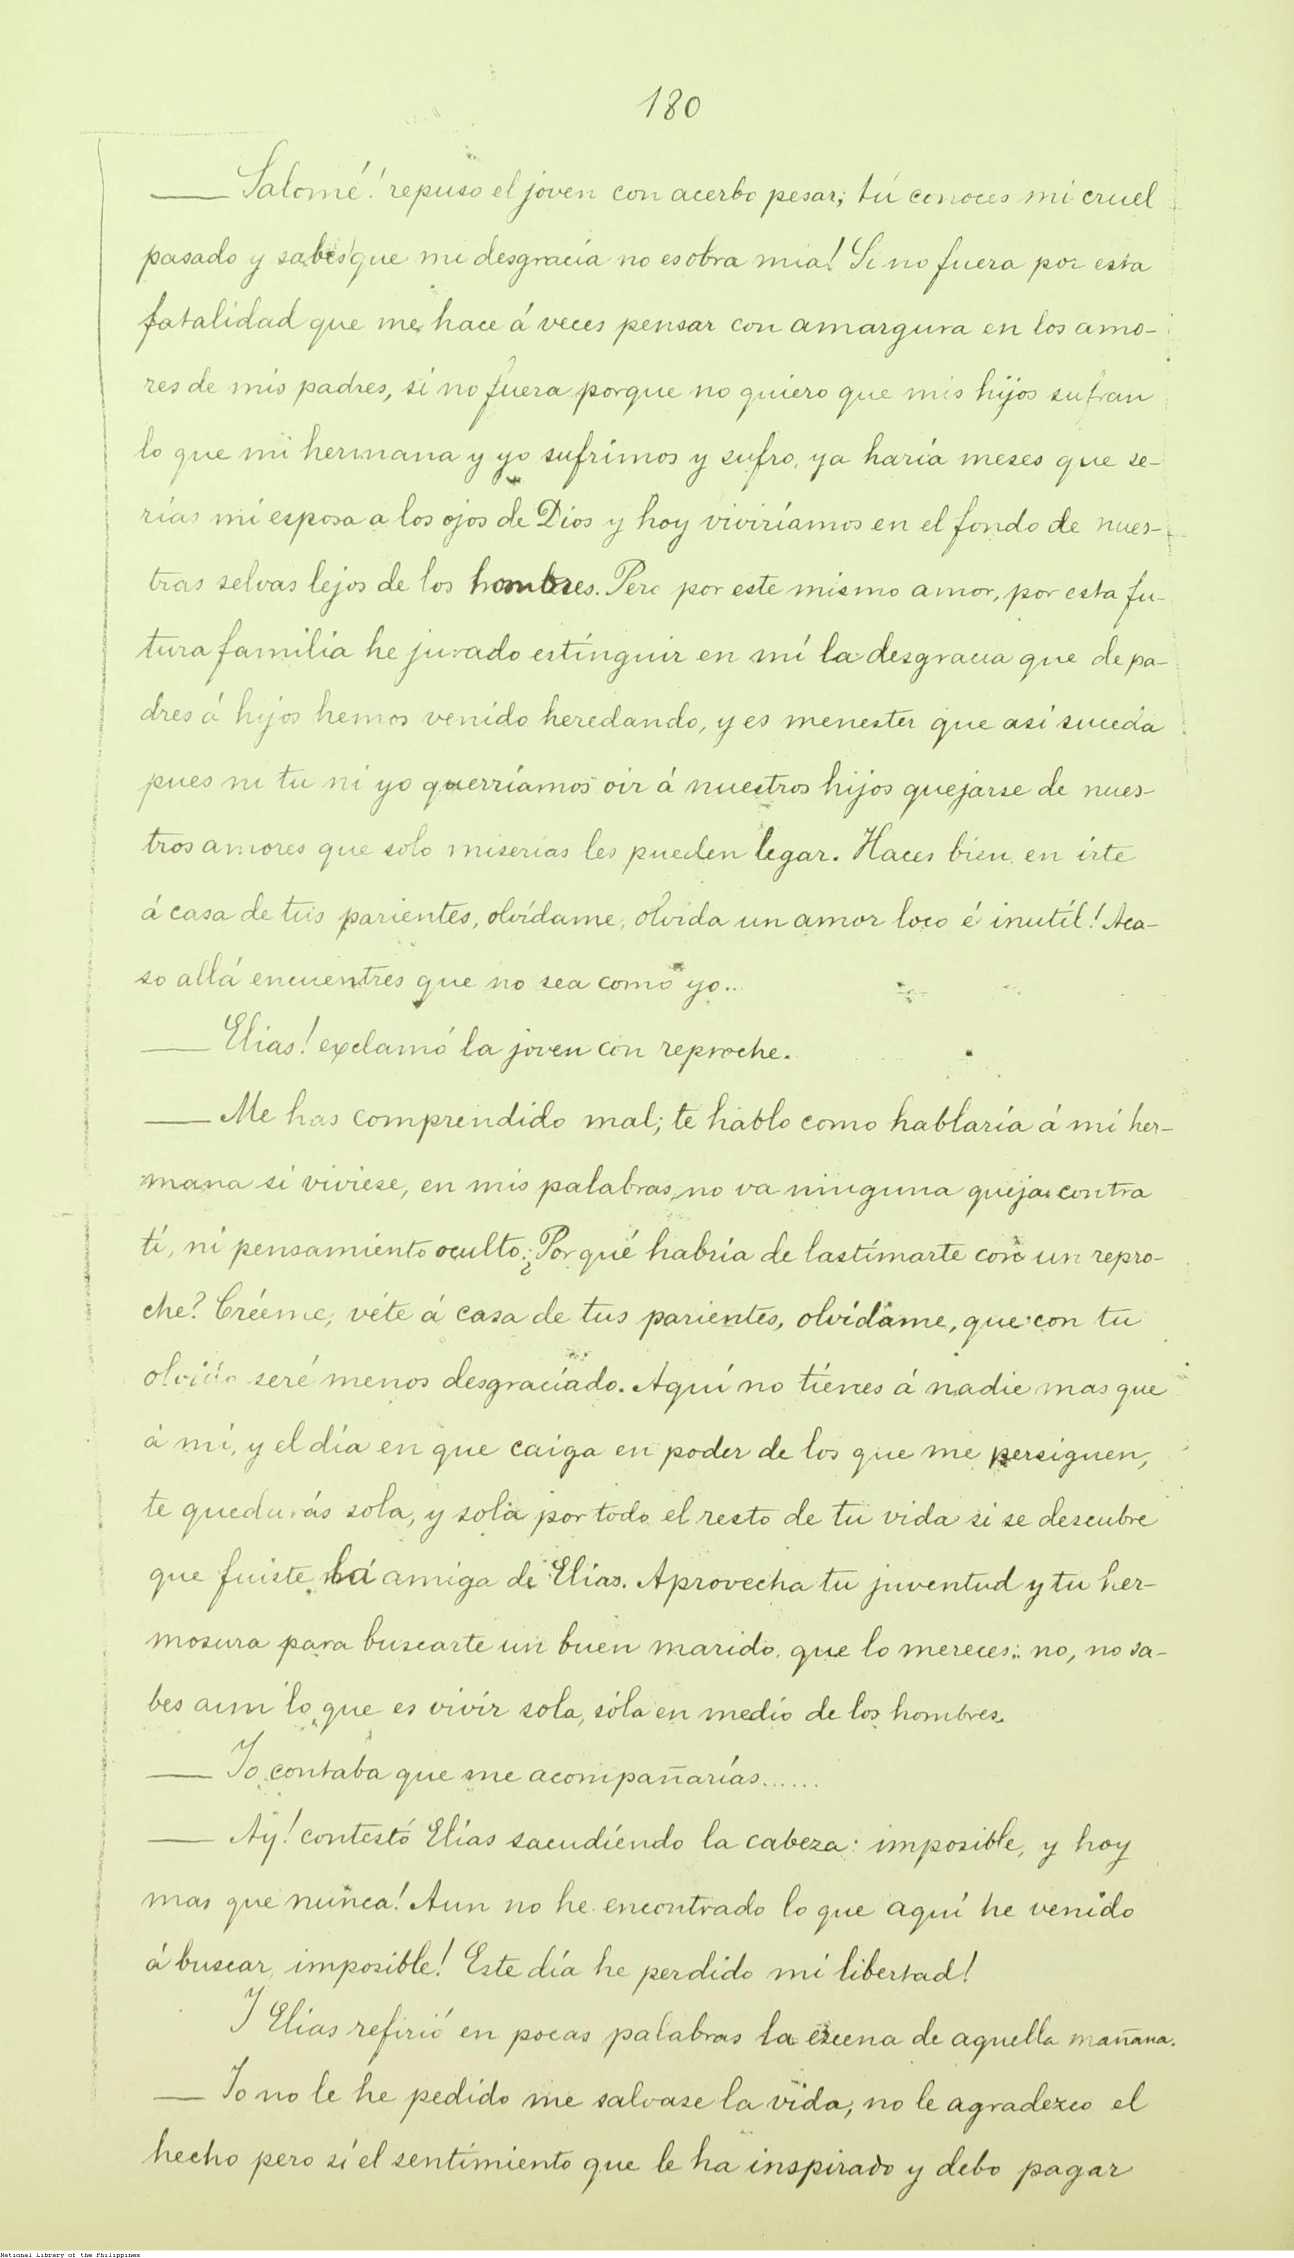 180
— Salomé! repuso el joven con acerbo pesar; tú conoces mi cruel
pasado y sabes que mi desgracia no es obra mia! Si no fuera por esta
fatalidad que me hace á veces pensar con amargura en los amo-
res de mis padres, si no fuera porque no quiero que mis hijos sufran
lo que mi hermana y yo sufrimos y sufro, ya haría meses que se-
rías mi esposa a los ojos de Dios y hoy viviríamos en el fondo de nues-
tras selvas lejos de los hombres. Pero por este mismo amor, por esta fu-
tura familia he jurado estinguir en mí la desgracia que de pa-
dres á hijos hemos venido heredando, y es menester que así suceda
pues ni tu ni yo querríamos oir á nuestros hijos quejarse de nues-
tros amores que solo miserias les pueden legar. Haces bien en irte
á casa de tus parientes, olvídame, olvida un amor loco é inutil! Aca-
so allá encuentres que no sea como yo..
— Elias! exclamó la joven con reproche.
— Me has comprendido mal; te hablo como hablaría á mi her-
mana si viviese, en mis palabras no va ninguna queja contra
ti, ni pensamiento oculto. ¿Por qué habría de lastimarte con un repro-
che? Créeme, véte á casa de tus parientes, olvídame, que con tu
olvido seré menos desgraciado. Aquí no tienes á nadie mas que
á mí, y el día en que caiga en poder de los que me persiguen,
te quedarás sola, y sola por todo el resto de tu vida si se descubre
que fuiste la amiga de Elías. Aprovecha tu juventud y tu her-
mosura para buscarte un buen marido que lo mereces; no, no sa-
bes aun lo que es vivir sola, sóla en medio de los hombres.
— Yo contaba que me acompañarías......
— Ay! contestó Elías sacudiendo la cabeza: imposible, y hoy
mas que nunca! Aun no he encontrado lo que aquí he venido
á buscar, imposible! Este día he perdido mi libertad!
Y Elías refirió en pocas palabras la escena de aquella mañana.
— Yo no le he pedido me salvase la vida, no le agradezco el
hecho pero sí el sentimiento que le ha inspirado y debo pagar
National Library of the Philippines